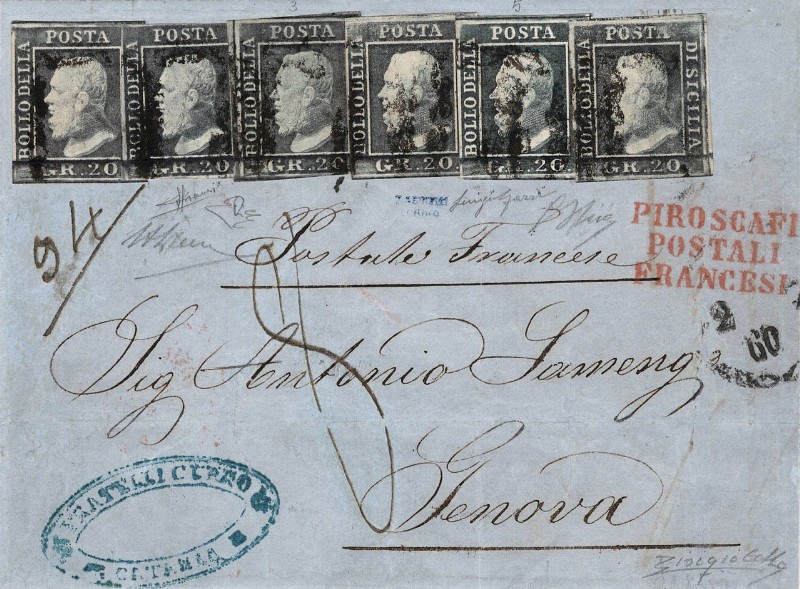 3 5
BOLLO DELLA POSTA GR. 20
BOLLO DELLA POSTA GR. 20
BOLLO DELLA POSTA GR. 20
BOLLO DELLA POSTA GR. 20
BOLLO DELLA POSTA GR. 20
BOLLO DELLA POSTA DI SICILIA GR. 20
94
PIROSCAFI
POSTALI
FRANCESI
Postale Francese
2
60
Sig Antonio Lamengo
Genova
FRATELLI
CATANIA